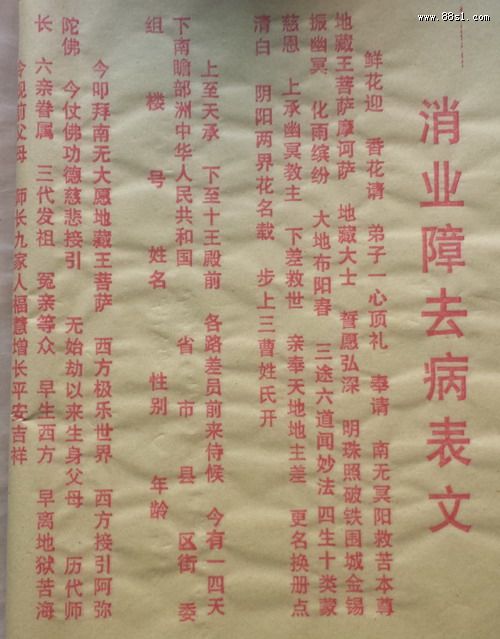 www.88sl.com
消业障去病表文
鲜花迎 香花请 弟子一心顶礼 奉请 南无冥阳救苦本尊
地藏王菩萨摩诃萨 地藏大士 誓愿弘深 明珠照破铁围城金锡
振幽冥 化雨缤纷 大地布阳春 三途六道闻妙法 四生十类蒙
慈恩 上承幽冥教主 下差救世 亲奉天地地主差 更名换册点
清白 阴阳两界花名载 步上三曹姓氏开
上至天承 下至十王殿前 各路差员前来侍候 今有一四天
下南瞻部洲中华人民共和国 省 市 县 区街 委
组 楼 号 姓名 性别 年龄
今叩拜南无大愿地藏王菩萨 西方极乐世界 西方接引阿弥
陀佛 今仗佛功德慈悲接引 无始劫以来生身父母 历代师
长 六亲眷属 三代发祖 冤亲等众 早生西方 早离地狱苦海
令现前父母 师长九家人福慧增长平安吉祥